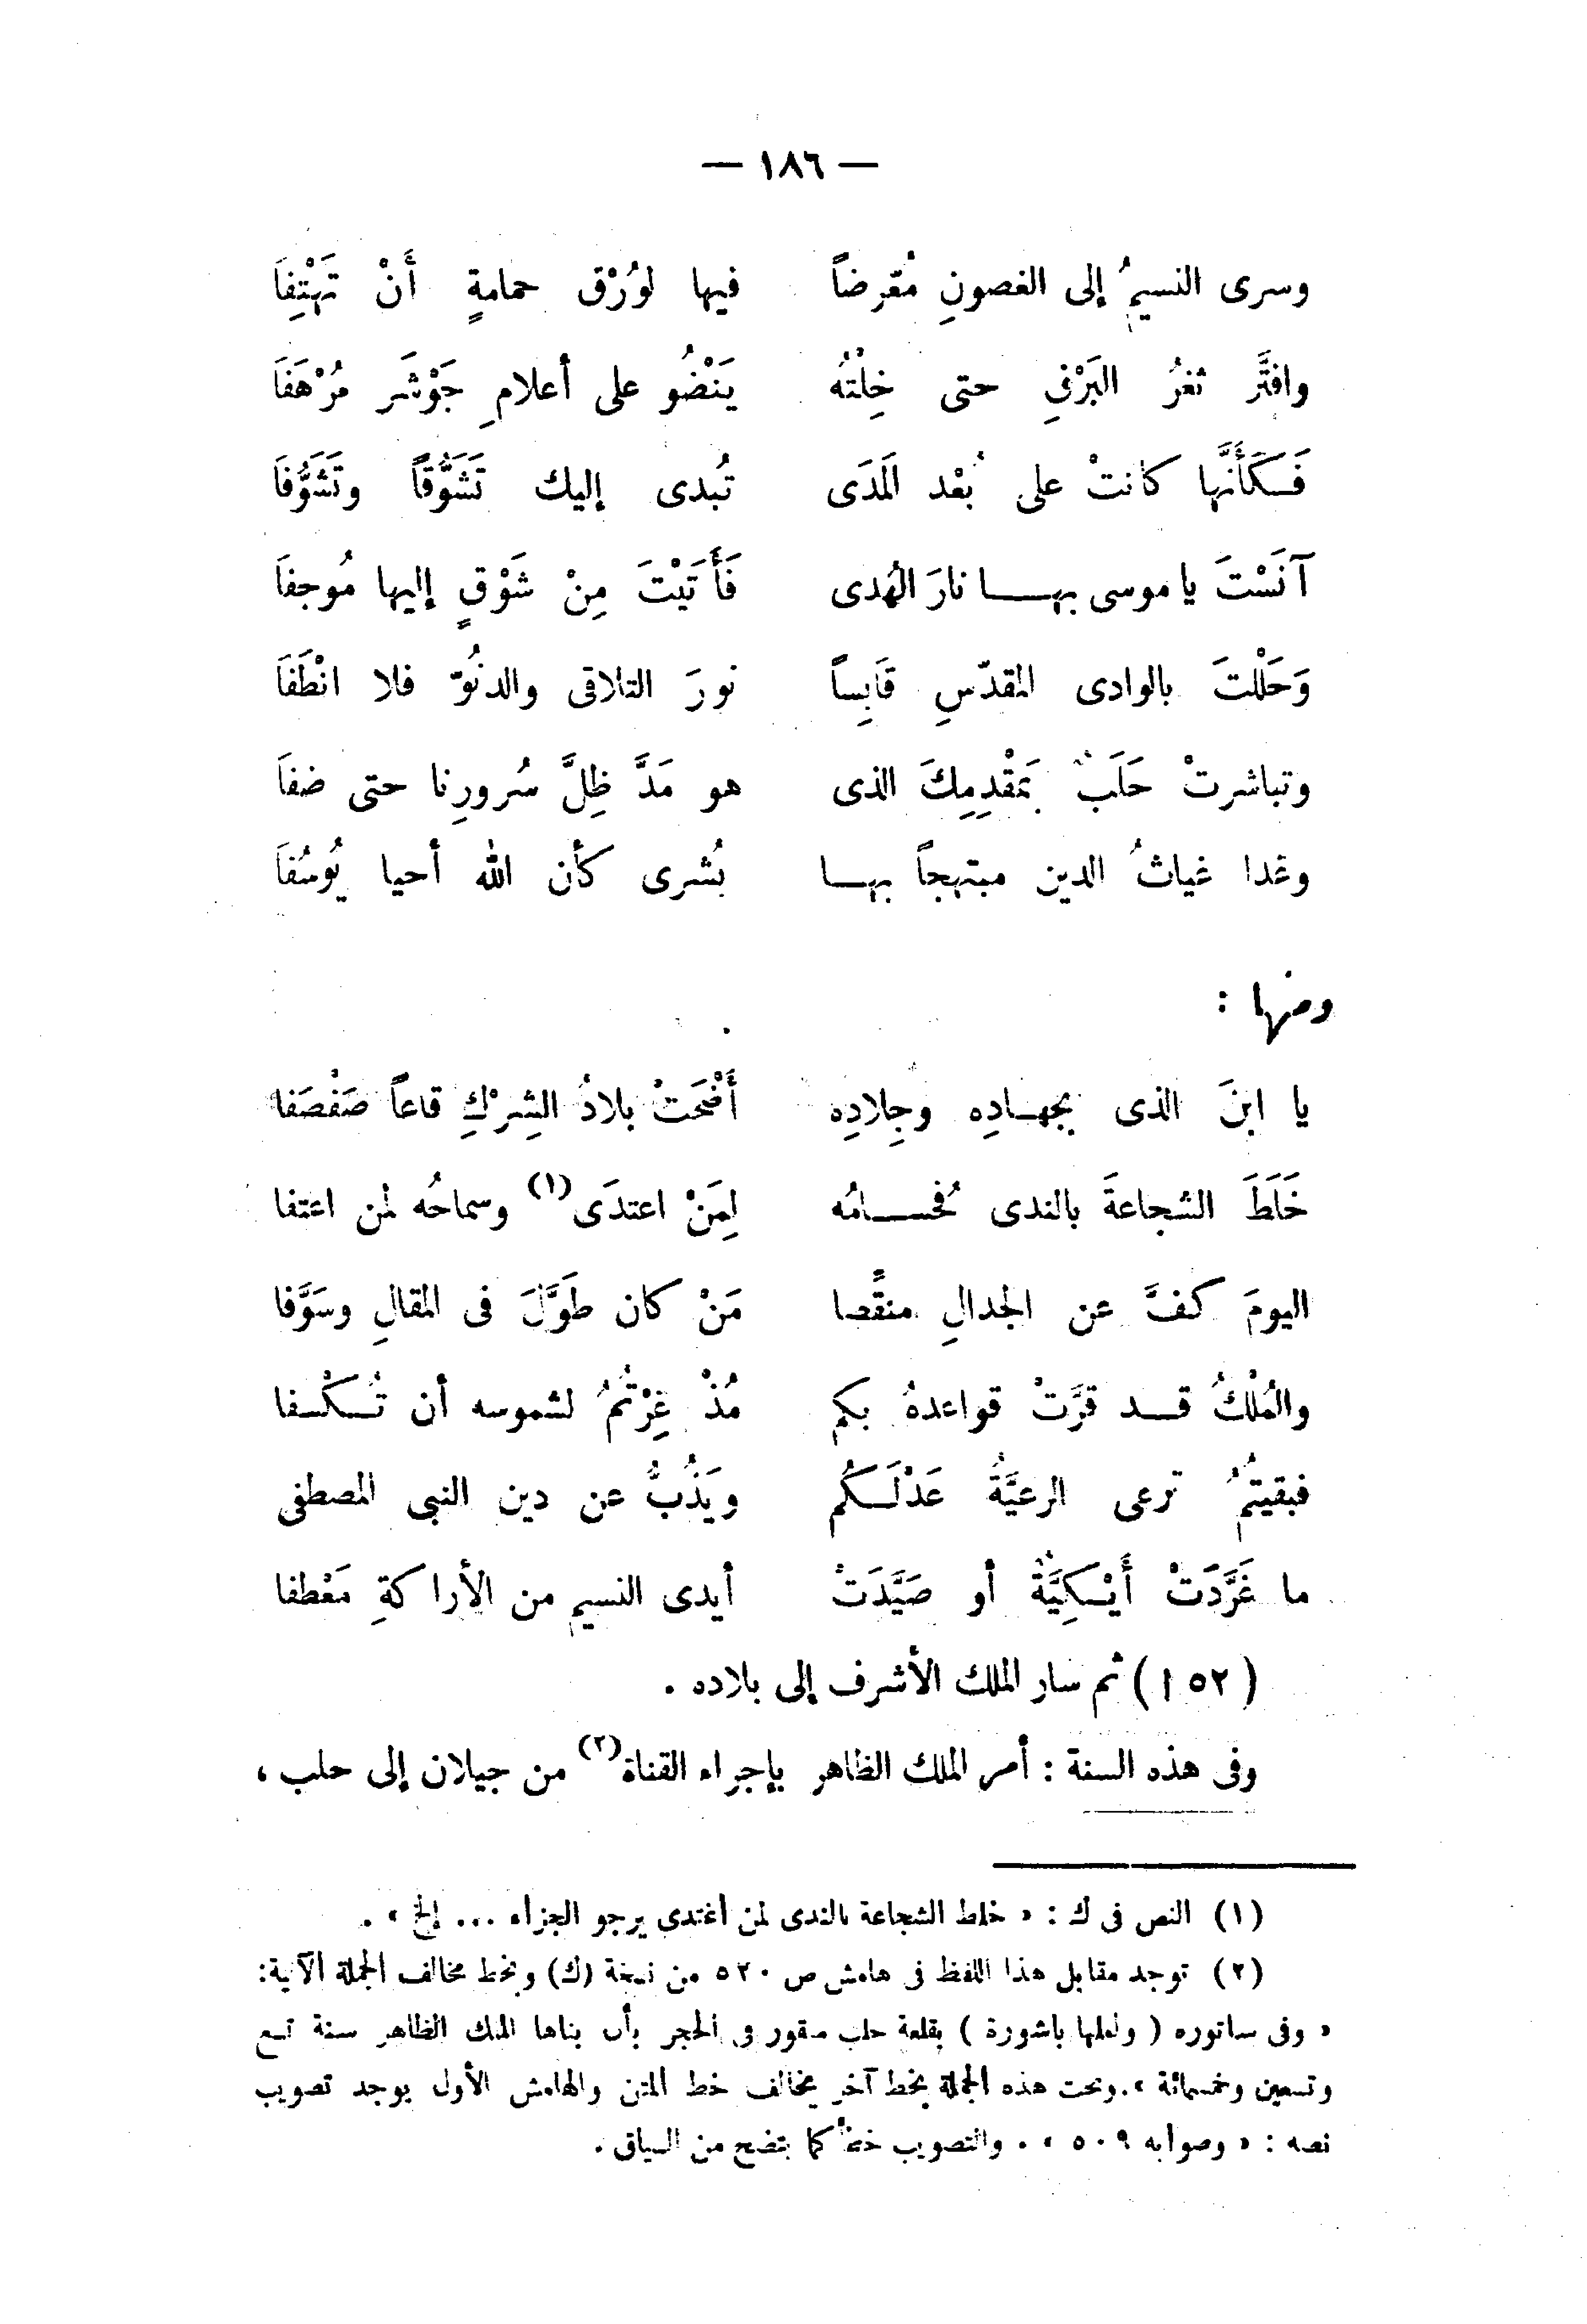 — ١٨٦ —
وسرى النسيمُ إلى الغصونِ مُقرضاً فيها لوُرْق حمامةٍ أَنْ تَهْتِفَا
وافتَّر ثغرُ البَرْقِ حتى خِلْتُه يَنْضُو على أعلامِ جَوْشَر مُرْهَفَا
فَكَأَنَّها كانتْ على بُعْد المَدَى تُبدى إليك تَشَوُّقاً وتَشَوُّفَا
آنَسْتَ يا موسى بها نارَ الهُدى فَأَتَيْتَ مِنْ شَوْقٍ إليها مُوجفَا
وَحَلْلتَ بالوادى المقدّسِ قَابِساً نورَ التلاقى والدنُوّ فلا انْطَفَا
وتباشرتْ حَلَبٌ بمَقْدِمِكَ الذى هو مَدَّ ظِلَّ سُرورِنا حتى ضفَا
وغدا غياثُ الدين مبتهجاً بها بُشرى كأن الله أحيا يُوسُفَا
ومنها :
يا ابنَ الذى بجهادِه وجِلادِه أَضْحَتْ بلادُ الشِرْكِ قاعاً صَفْصَفا
خَلَطَ الشجاعةَ بالندى فحُسامُه لِمَنْ اعتدَى (١) وسماحُه لمن اعتفا
اليومَ كفَّ عن الجدالِ منقَّصا مَنْ كان طَوَّلَ فى المقالِ وسَوَّفا
والمُلْكُ قد قرَّتْ قواعدهُ بكم مُذْ غِرْتُمُ لشموسه أن تُكْسفا
فبقيتُمُ ترعى الرعيَّةُ عَدْلَكُم ويَذُبُّ عن دين النبى المصطفى
ما غَرَّدَتْ أَيْكِيَّةٌ أو صَيَّدَتْ أيدى النسيم من الأراكةِ مَعْطفا
(١٥٢) ثم سار الملك الأشرف إلى بلاده .
وفى هذه السنة : أمر الملك الظاهر بإجراء القناة (٢) من جيلان إلى حلب ،
(١) النص فى ك : « خلط الشجاعة بالندى لمن أغتدى يرجو الجزاء ... إلخ » .
(٢) توجد مقابل هذا اللفظ فى هامش ص ٥٢٠ من نسخة (ك) وبخط مخالف الجملة الآتية:
« وفى ساتوره ( ولعلها باشورة ) بقلعة حلب منقور فى الحجر بأن بناها الملك الظاهر سنة تسع
وتسعين وخمسمائة » . وتحت هذه الجملة بخط آخر يخالف خط المتن والهامش الأول يوجد تصويب
نصه : « وصوابه ٥٠٩ » . والتصويب خطأ كما يتضح من السياق .